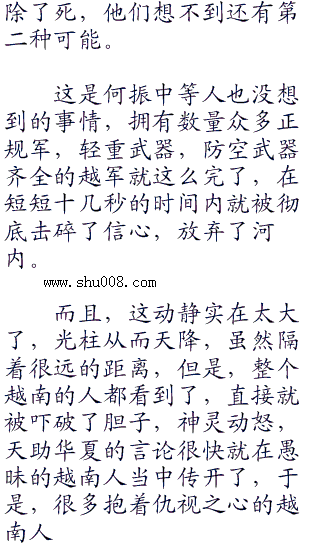 除了死，他们想不到还有第
二种可能。
这是何振中等人也没想
到的事情，拥有数量众多正
规军，轻重武器，防空武器
齐全的越军就这么完了，在
短短十几秒的时间内就被彻
底击碎了信心，放弃了河
内。
www.shu008.com
而且，这动静实在太大
了，光柱从而天降，虽然隔
着很远的距离，但是，整个
越南的人都看到了，直接就
被吓破了胆子，神灵动怒，
天助华夏的言论很快就在愚
昧的越南人当中传开了，于
是，很多抱着仇视之心的越
南人